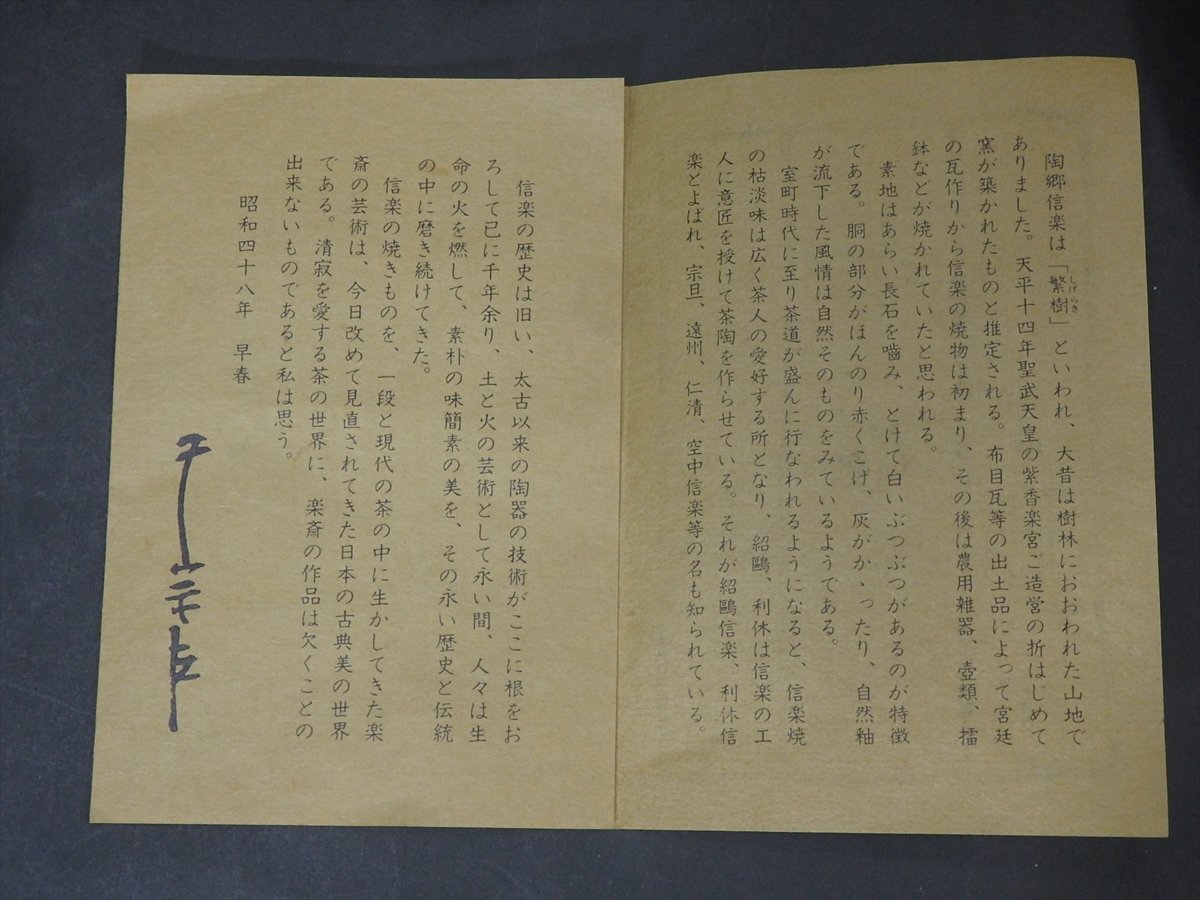 陶郷信楽は「繁樹」といわれ、大昔は樹林におおわれた山地で
しげらき
ありました。天平十四年聖武天皇の紫香楽宮ご造営の折はじめて
窯が築かれたものと推定される。布目瓦等の出土品によって宮廷
の瓦作りから信楽の焼物は初まり、その後は農用雑器、壺類、擂
鉢などが焼かれていたと思われる。
素地はあらい長石を嚙み、とけて白いぶつぶつがあるのが特徴
である。胴の部分がほんのり赤くこけ、灰がかゝったり、自然釉
が流下した風情は自然そのものをみているようである。
室町時代に至り茶道が盛んに行なわれるようになると、信楽焼
の枯淡味は広く茶人の愛好する所となり、紹鷗、利休は信楽の工
人に意匠を授けて茶陶を作らせている。それが紹鷗信楽、利休信
楽とよばれ、宗旦、遠州、仁清、空中信楽等の名も知られている。
信楽の歴史は旧い、太古以来の陶器の技術がここに根をお
ろして已に千年余り、土と火の芸術として永い間、人々は生
命の火を燃して、素朴の味簡素の美を、その永い歴史と伝統
の中に磨き続けてきた。
信楽の焼きものを、一段と現代の茶の中に生かしてきた楽
斎の芸術は、今日改めて見直されてきた日本の古典美の世界
である。清寂を愛する茶の世界に、楽斎の作品は欠くことの
出来ないものであると私は思う。
昭和四十八年 早春